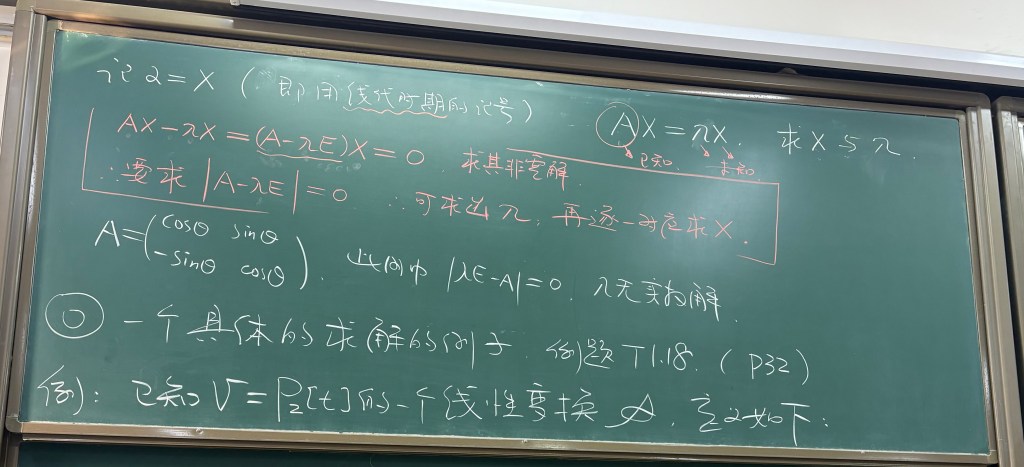 记α=X (即用线代时期的记号) AX=λX. 求X与λ.
已知 未知
AX-λX=(A-λE)X=0 求其非零解.
∴要求 |A-λE|=0 ∴可求出λ, 再逐一对应求X.
A=(cosθ sinθ
-sinθ cosθ). 此例中 |λE-A|=0. λ无实数解.
◎ 一个具体的求解的例子. 例题T1.18. (P32)
例: 已知V=P₂[t]的一个线性变换𝒜, 定义如下: